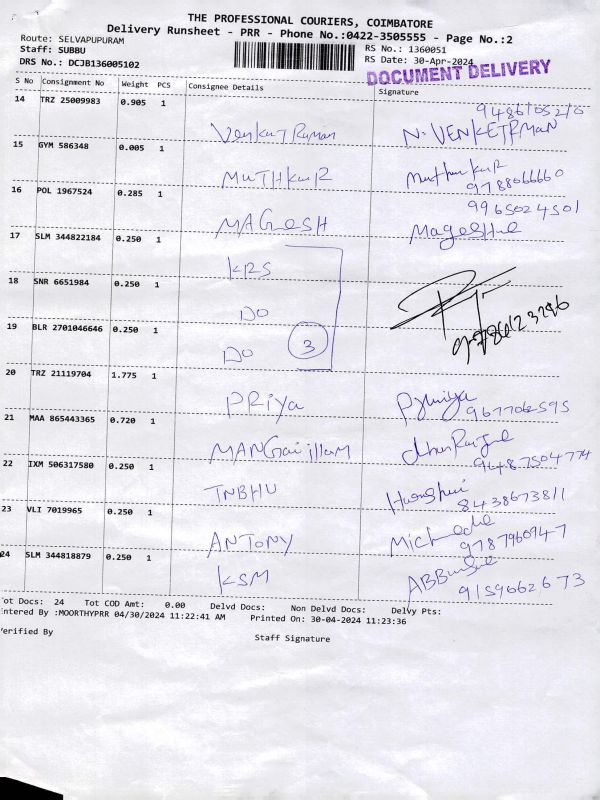 THE PROFESSIONAL COURIERS, COIMBATORE
Delivery Runsheet - PRR - Phone No.:0422-3505555 - Page No.:2
Route: SELVAPUPURAM
RS No.: 1360051
Staff: SUBBU
RS Date: 30-Apr-2024
DRS No.: DCJB136005102
DOCUMENT DELIVERY
S No Consignment No Weight PCS Consignee Details Signature
14 TRZ 25009983 0.905 1
Venkat Raman N. VENKETRMAN
15 GYM 586348 0.005 1
MUTHKUR Muthukur
9788066660
16 POL 1967524 0.285 1
9965024501
MAGESH
17 SLM 344822184 0.250 1
KRS
18 SNR 6651984 0.250 1
DO
19 BLR 2701046646 0.250 1
DO 3
20 TRZ 21119704 1.775 1
PRiya
21 MAA 865443365 0.720 1
9487504774
22 IXM 506317580 0.250 1
TNBHU
8438673811
23 VLI 7019965 0.250 1
ANTONY
9787960947
24 SLM 344818879 0.250 1
KSM
9159662673
Tot Docs: 24 Tot COD Amt: 0.00 Delvd Docs: Non Delvd Docs: Delvy Pts:
ntered By :MOORTHYPRR 04/30/2024 11:22:41 AM Printed On: 30-04-2024 11:23:36
erified By
Staff Signature